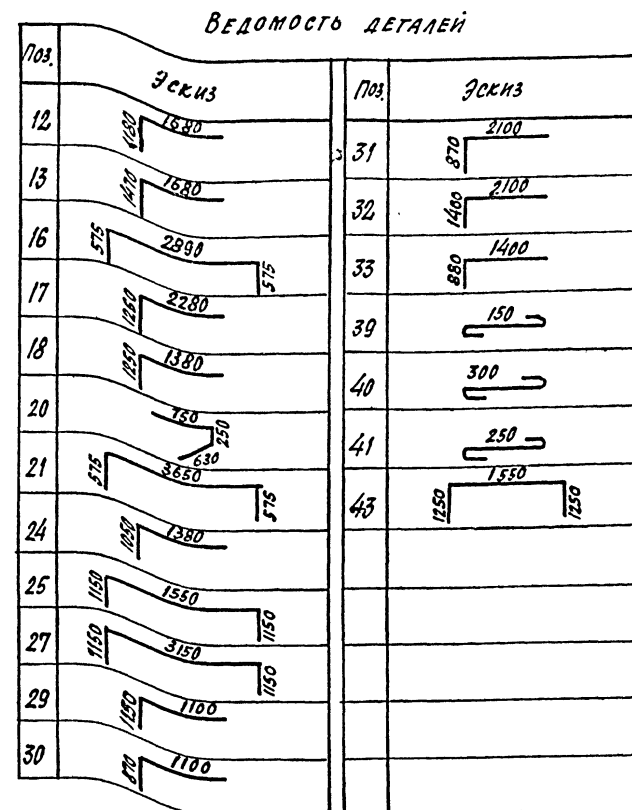 Ведомость деталей
Поз. Эскиз
12 1180 1680
13 1470 1680
16 575 2890 575
17 1260 2280
18 1250 1380
20 750 250 630
21 575 3650 575
24 1050 1380
25 1150 1550 1150
27 1150 3150 1150
29 1150 1100
30 870 1100
Поз. Эскиз
31 870 2100
32 1400 2100
33 880 1400
39 150
40 300
41 250
43 1250 1550 1250